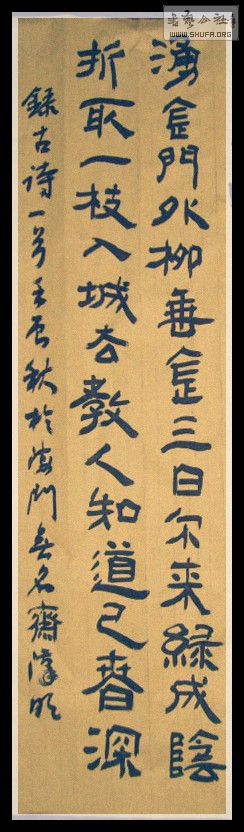 书艺公社
WWW.SHUFA.ORG
湧金門外柳垂金三日不来緑成陰
折取一枝入城去教人知道已春深
録古诗一首壬辰秋於海門無名齋漢明